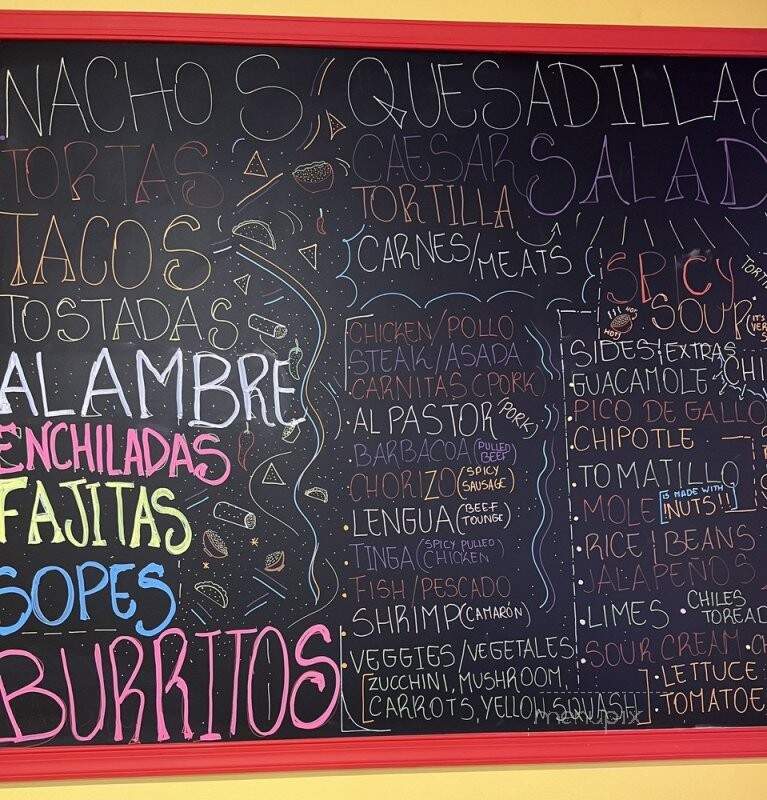 NACHOS
TORTAS
TACOS
TOSTADAS
ALAMBRE
ENCHILADAS
FAJITAS
SOPES
BURRITOS
QUESADILLAS
CAESAR SALAD
TORTILLA
CARNES/MEATS
CHICKEN/POLLO
STEAK/ASADA
CARNITAS (PORK)
AL PASTOR (PORK)
BARBACOA (PULLED BEEF)
CHORIZO (SPICY SAUSAGE)
LENGUA (BEEF TOUNGE)
TINGA (SPICY PULLED CHICKEN
FISH/PESCADO
SHRIMP (CAMARÓN)
VEGGIES/VEGETALES
[ZUCCHINI, MUSHROOM,
CARROTS, YELLOW SQUASH]
SPICY
SOUP
HOT
HOT!
SIDES/EXTRAS
GUACAMOLE
PICO DE GALLO
CHIPOTLE
TOMATILLO
MOLE IS MADE WITH NUTS!!
RICE BEANS
JALAPEÑOS
LIMES • CHILES
SOUR CREAM
• LETTUCE
• TOMATOE
menupix